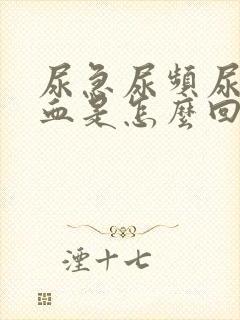 尿急尿頻尿
血是怎麼回
湮十七